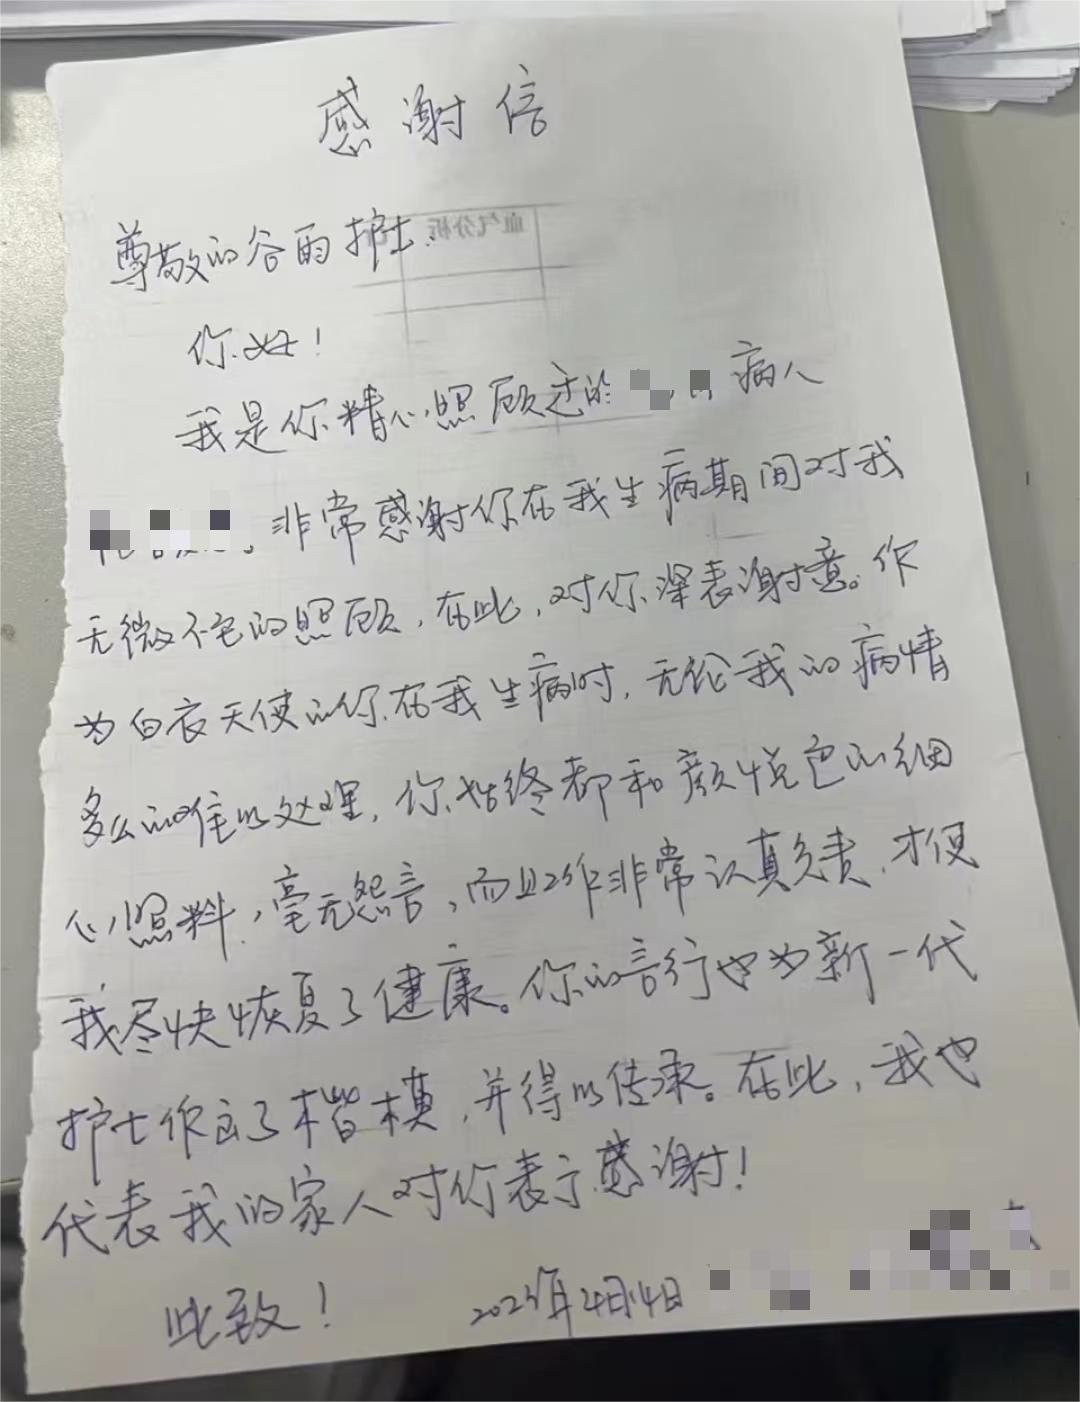 感谢信
血气分析
尊敬的谷雨护士:
你好!
我是你精心照顾过的 病人
非常感谢你在我生病期间对我
无微不至的照顾,在此,对你深表谢意。作
为白衣天使的你在我生病时,无论我的病情
多么的难以处理,你始终都和颜悦色的细
心照料,毫无怨言,而且工作非常认真负责,才使
我尽快恢复了健康。你的言行也为新一代
护士作出了楷模,并得以传承。在此,我也
代表我的家人对你表示感谢!
此致! 2023年4月14日